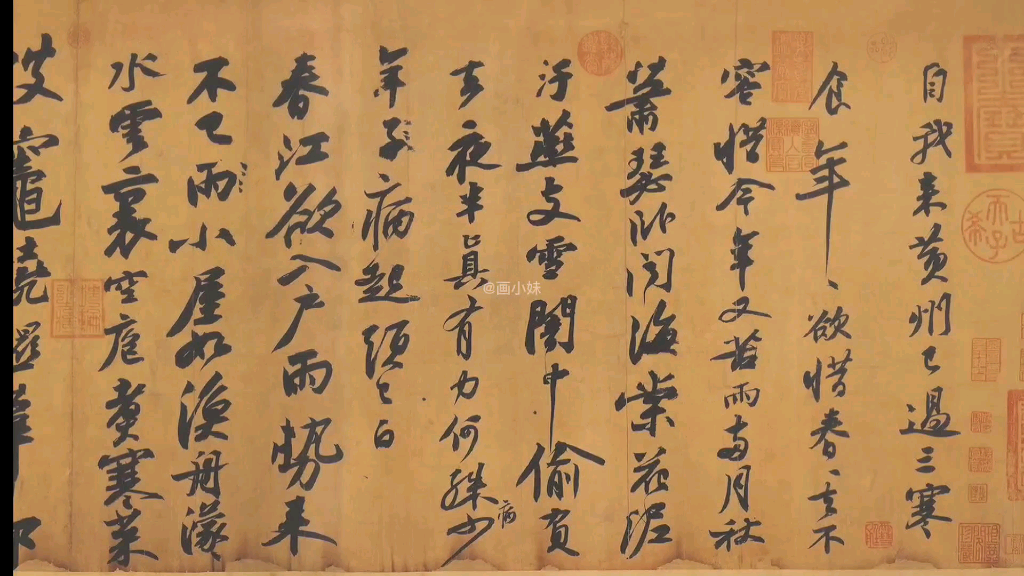 自我来黄州已過三寒
食年ヽ欲惜春ヽ去不
容惜今年又苦雨两月秋
蕭瑟卧聞海棠花泥
汙燕支雪闇中偷負
去夜半真有力何殊少病
年子病起頭已白
春江欲入户雨勢来
不已雨小屋如漁舟濛
水雲裏空庖煮寒菜
破竈燒濕葦那
古希天子
@画小妹